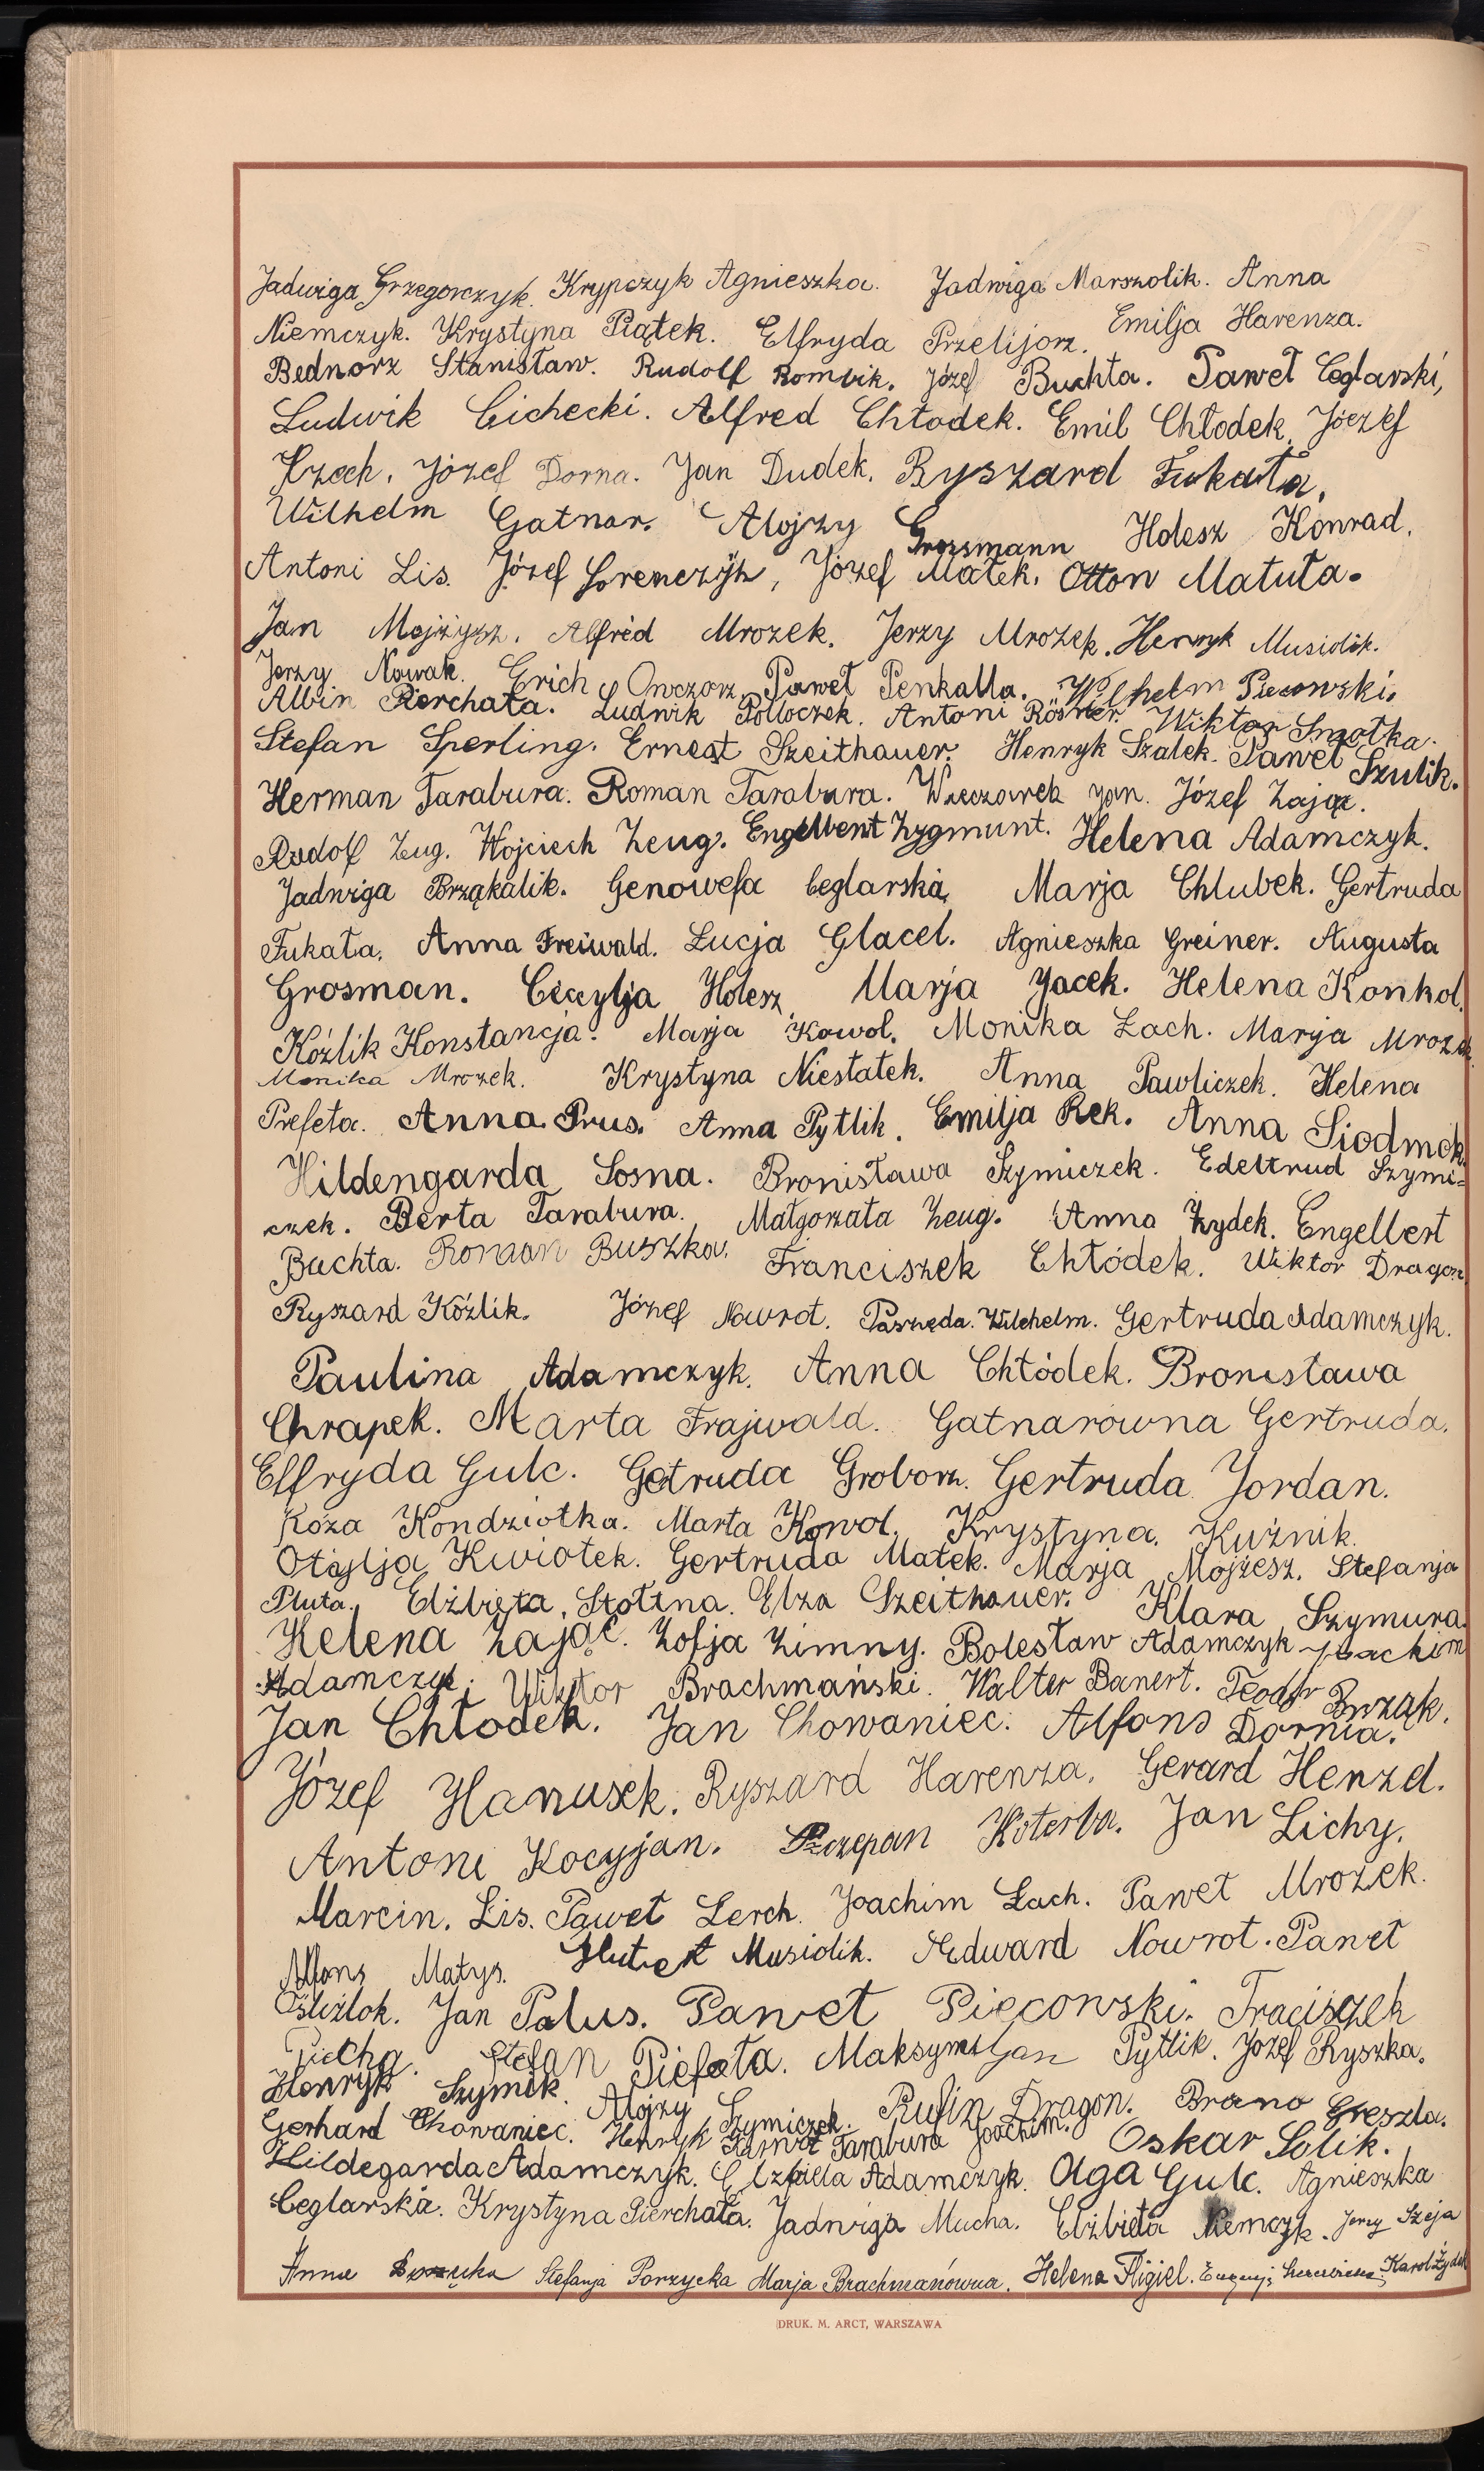 Jadwiga Grzegorczyk. Krypczyk Agnieszka. Jadwiga Marszolik. Anna
Niemczyk. Krystyna Piątek. Elfryda Przelijorz. Emilja Harenza.
Bednorz Stanisław. Rudolf Rombik. Józef Buchta. Paweł Ceglarski,
Ludwik Cichecki. Alfred Chłodek. Emil Chłodek. Józef
Czech. Józef Dorna. Jan Dudek. Ryszard Fukała.
Wilhelm Gatnar. Alojzy Grossmann Holesz Konrad.
Antoni Lis. Józef Lorenczyk, Józef Małek. Otton Matuła.
Jan Mojżysz. Alfred Mrozek. Jerzy Mrozek. Henryk Musiolik.
Jerzy Nowak. Erich Owczorz. Paweł Penkalla. Wilhelm Piecowski.
Albin Pierchała. Ludwik Polloczek. Antoni Rösner. Wiktor Smołka.
Stefan Sperling. Ernest Szeithauer. Henryk Szalek. Paweł Szulik.
Herman Tarabura. Roman Tarabura. Wieczorek Jan. Józef Zając.
Rudolf Zeug. Wojciech Zeug. Engelbert Zygmunt. Helena Adamczyk.
Jadwiga Brząkalik. Genowefa Ceglarska. Marja Chlubek. Gertruda
Fukała. Anna Freiwald. Łucja Glacel. Agnieszka Greiner. Augusta
Grosman. Cecylja Holesz. Marja Jacek. Helena Konkol.
Koźlik Konstancja. Marja Kowol. Monika Lach. Marja Mrozek.
Monika Mrozek. Krystyna Niestatek. Anna Pawliczek. Helena
Prefeta. Anna Prus. Anna Pytlik. Emilja Rek. Anna Siodmok.
Hildengarda Sosna. Bronisława Szymiczek. Edeltrud Szymi=
czek. Berta Tarabura. Małgorzata Zeug. Anna Żydek. Engelbert
Buchta. Roman Buszka. Franciszek Chłódek. Wiktor Dragon.
Ryszard Koźlik. Józef Nowrot. Paszęda Wilchelm. Gertruda Adamczyk.
Paulina Adamczyk. Anna Chłódek. Bronisława
Chrapek. Marta Frajwald. Gatnarówna Gertruda.
Elfryda Gulc. Getruda Groborz. Gertruda Jordan.
Róża Kondziołka. Marta Kowol. Krystyna Kuźnik.
Otylja Kwiotek. Gertruda Małek. Marja Mojżesz. Stefanja
Pluta. Elżbieta Stołtna. Elza Szeithauer. Klara Szymura.
Helena Zając. Zofja Zimny. Bolesław Adamczyk Joachim
Adamczyk. Wiktor Brachmański. Walter Banert. Teodor Brząk.
Jan Chłodek. Jan Chowaniec. Alfons Dornia.
Józef Hanusek. Ryszard Harenza. Gerard Henzel.
Antoni Kocyjan. Szczepan Koterba. Jan Lichy.
Marcin. Lis. Paweł Lerch. Joachim Łach. Paweł Mrozek.
Alfons Matys. Hubert Musiolik. Edward Nowrot. Paweł
Ośliźlok. Jan Palus. Paweł Piecowski. Fraciszek
Piecha. Stefan Piefeta. Maksymiljan Pytlik. Józef Ryszka.
Henryk Szymik. Alojzy Szymiczek. Rufin Dragon. Bruno Greszla.
Gerhard Chowaniec. Henryk Tarabura Joachim. Oskar Solik.
Hildegarda Adamczyk. Elżbieta Adamczyk. Olga Gulc. Agnieszka
Ceglarska. Krystyna Pierchała. Jadwiga Mucha. Elżbieta Niemczyk. Jerzy Szeja
Anna Stefanja Porzycka Marja Brachmanówna. Helena Fligiel. Karol Żydek
DRUK. M. ARCT, WARSZAWA